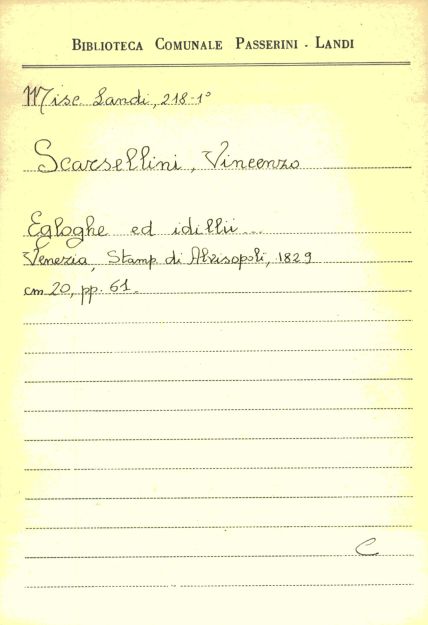 BIBLIOTECA COMUNALE PASSERINI - LANDI
Misc. Landi, 218-1°
Scarsellini, Vincenzo
Egloghe ed idillii...
Venezia, Stamp. di Alvisopoli, 1829
cm 20, pp. 61.
C